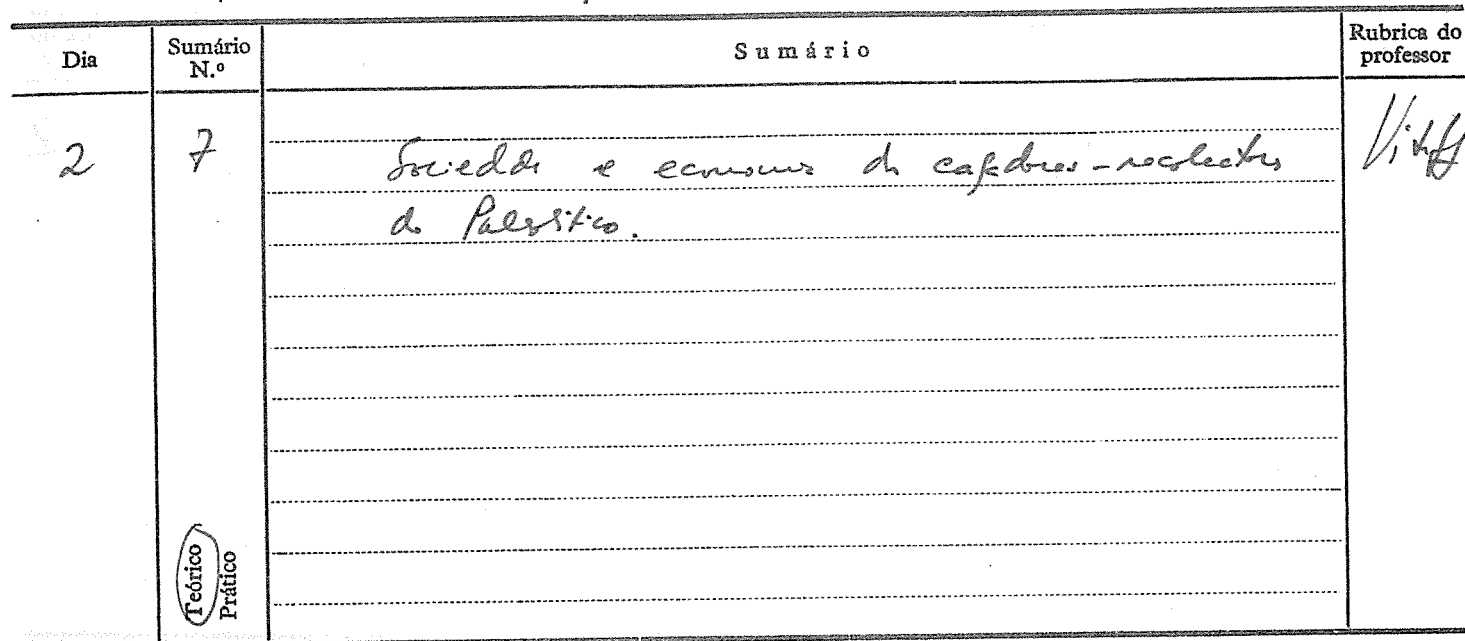 Dia
Sumário N.º
Sumário
Rubrica do professor
2
7
Sociedade e economia dos caçadores-recolectores
do Paleolítico.
Teórico
Prático